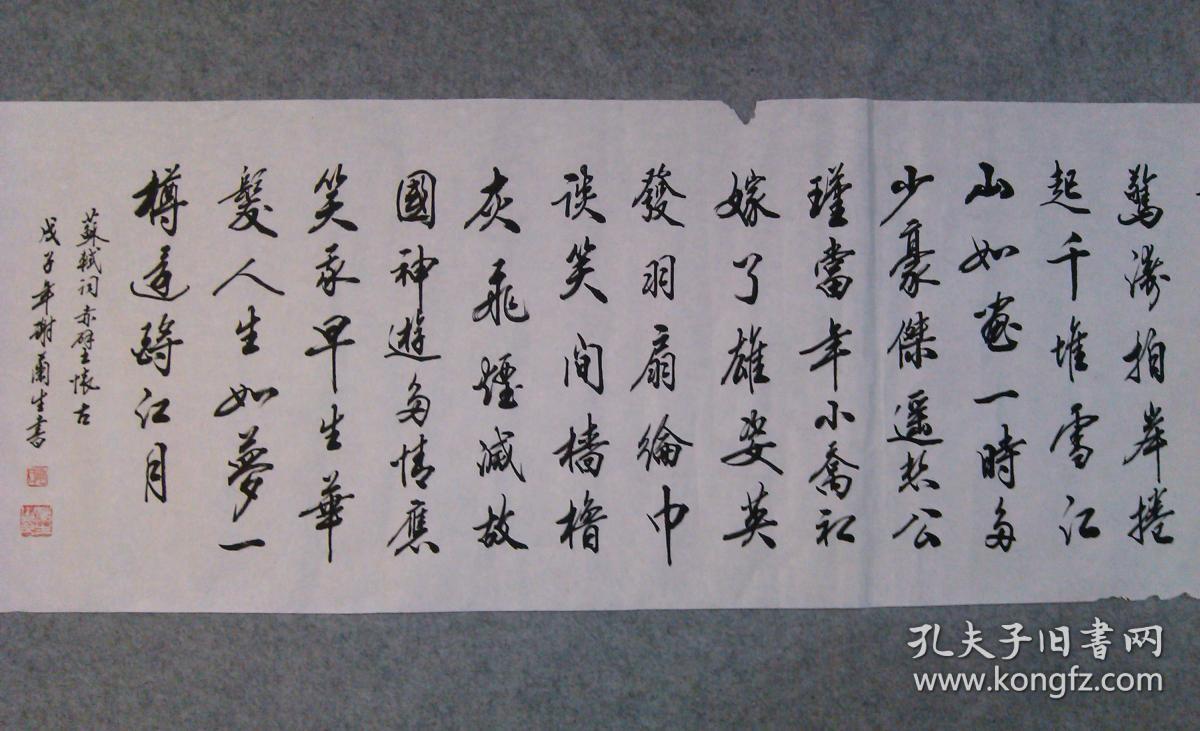 驚濤拍岸捲
起千堆雪江
山如畫一時多
少豪傑遥想公
瑾當年小喬初
嫁了雄姿英
發羽扇綸巾
談笑间檣櫓
灰飛煙滅故
國神遊多情應
笑我早生華
髮人生如夢一
樽還酹江月
蘇軾词赤壁懷古
戊子年謝蘭生書
孔夫子旧書网
www.kongfz.com